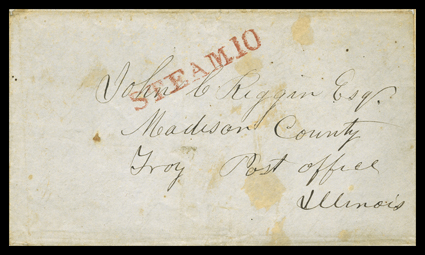 STEAM 10
John C Riggin Esq.
Madison County
Troy Post office
Illinois